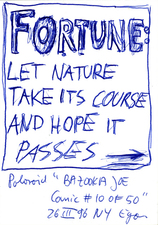 FORTUNE:
LET NATURE
TAKE ITS COURSE
AND HOPE IT
PASSES →
"BAZOOKA JOE
Comic # 10 OF 50"
26 III 96 NY